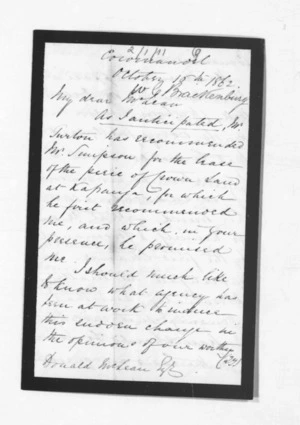 2/1/11
Coromandel
October 18th 186
W G Brackenbury
My dear McLean
As I anticipated, Mr
Turton has recommended
Mr Simpson for the lease
of the piece of crown land
at Kapanga, for which
he first recommended
me, and which, in your
presence, he promised
me.
I should much like
to know what agency has
been at work to induce
this sudden change in
the opinions of our worthy
Donald McLean Esq